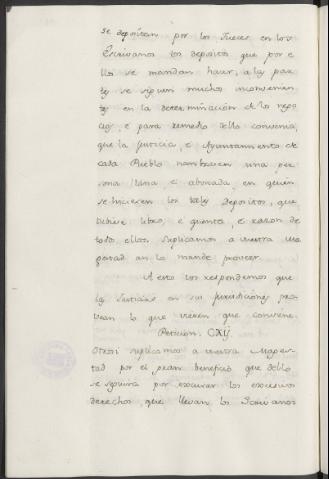 se depositan por los Jueces en los
Escrivanos los depositos que por e
llos se mandan hacer, a las par
tes se siguen muchos inconvenien
tes en la determinación de los nego
cios, e para remedio dello convenia,
que la Justicia, e Ayuntamiento de
cada Pueblo nombrasen una per
sona llana, e abonada, en quien
se hiciesen los tales depositos, que
tubiese libro, e quenta, e razon de
todo ellos. Suplicamos a vuestra Ma
gestad an lo mande proveer.
A esto vos respondemos que
las Justicias en sus jurisdiciones pro
vean lo que vieren que conviene.
Peticion. CXIJ.
Otrosi suplicamos a vuestra Mages-
tad por el gran beneficio que dello
se seguira por escusar los excesivos
derechos, que llevan los Escrivanos